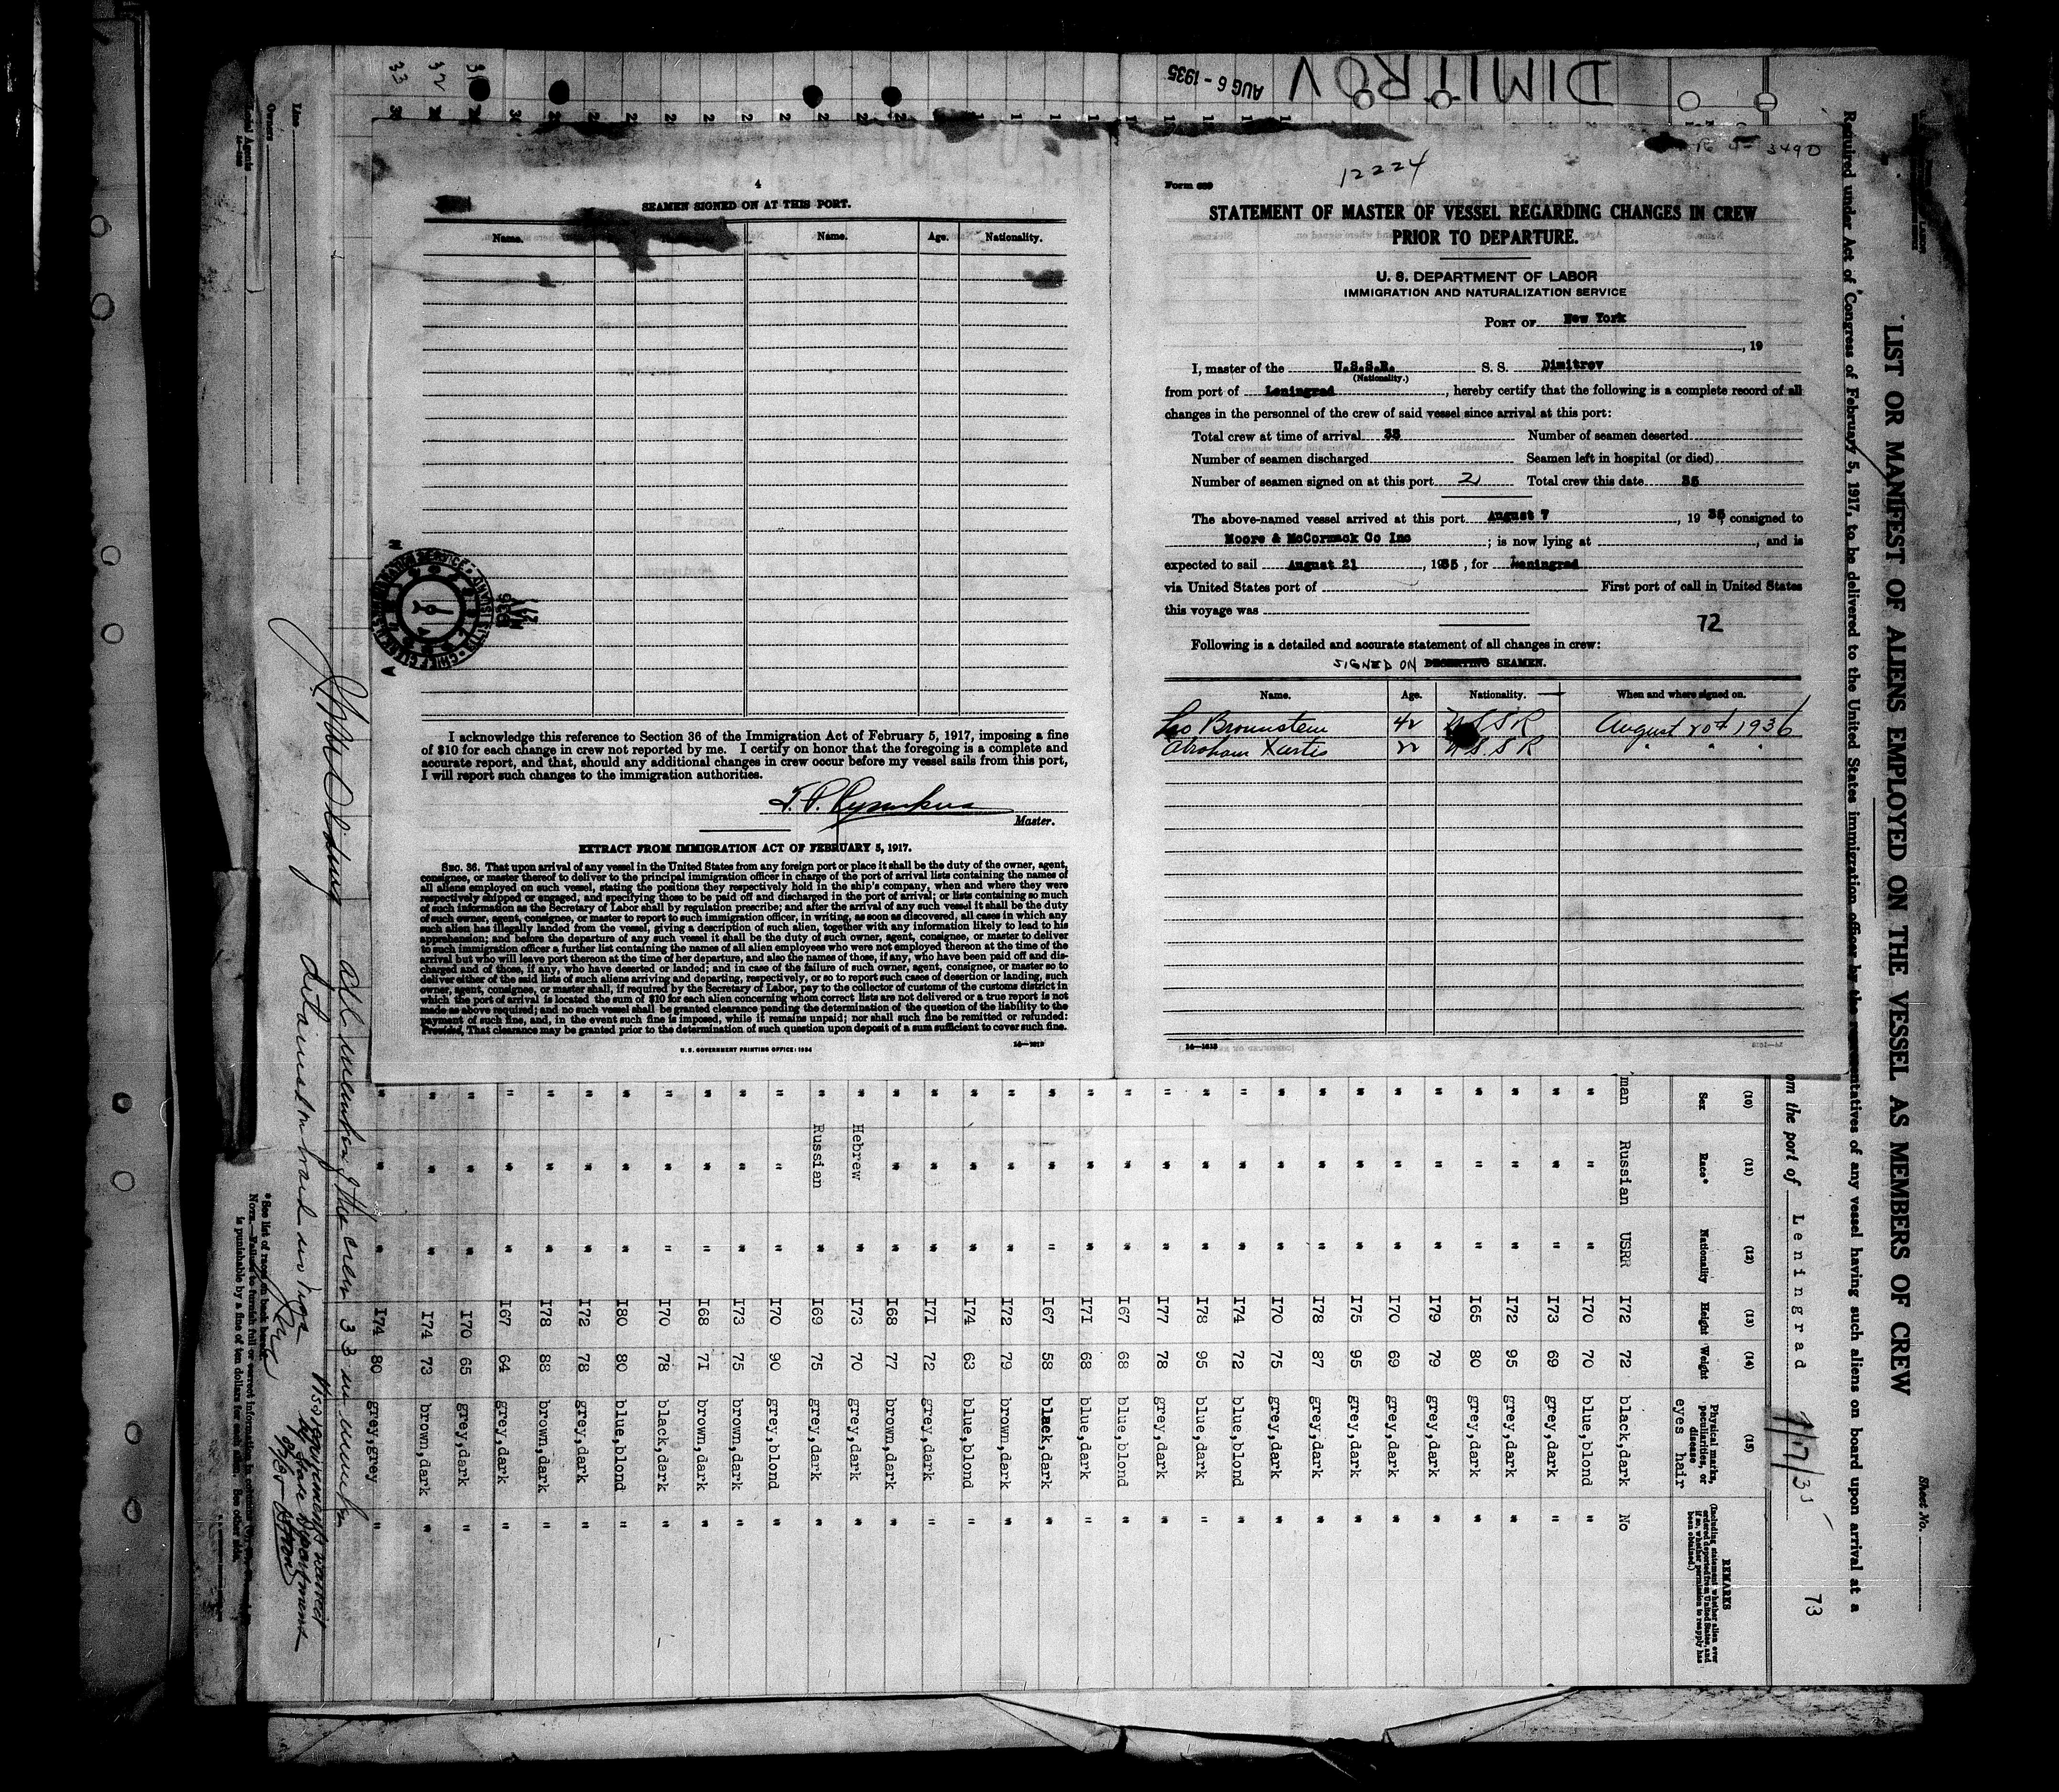 DIMITROV
AUG 6 - 1935
3490
12224
4
SEAMEN SIGNED ON AT THIS PORT.
Name. Name. Age. Nationality.
I acknowledge this reference to Section 36 of the Immigration Act of February 5, 1917, imposing a fine
of $10 for each change in crew not reported by me. I certify on honor that the foregoing is a complete and
accurate report, and that, should any additional changes in crew occur before my vessel sails from this port,
I will report such changes to the immigration authorities.
Master.
EXTRACT FROM IMMIGRATION ACT OF FEBRUARY 5, 1917.
SEC. 36. That upon arrival of any vessel in the United States from any foreign port or place it shall be the duty of the owner, agent,
consignee, or master thereof to deliver to the principal immigration officer in charge of the port of arrival lists containing the names of
all aliens employed on such vessel, stating the positions they respectively hold in the ship's company, when and where they were
respectively shipped or engaged, and specifying those to be paid off and discharged in the port of arrival; or lists containing so much
of such information as the Secretary of Labor shall by regulation prescribe; and after the arrival of any such vessel it shall be the duty
of such owner, agent, consignee, or master to report to such immigration officer, in writing, as soon as discovered, all cases in which any
such alien has illegally landed from the vessel, giving a description of such alien, together with any information likely to lead to his
apprehension; and before the departure of any such vessel it shall be the duty of such owner, agent, consignee, or master to deliver
to such immigration officer a further list containing the names of all alien employees who were not employed thereon at the time of the
arrival but who will leave port thereon at the time of her departure, and also the names of those, if any, who have been paid off and dis-
charged and of those, if any, who have deserted or landed; and in case of the failure of such owner, agent, consignee, or master so to
deliver either of the said lists of such aliens arriving and departing, respectively, or so to report such cases of desertion or landing, such
owner, agent, consignee, or master shall, if required by the Secretary of Labor, pay to the collector of customs of the customs district in
which the port of arrival is located the sum of $10 for each alien concerning whom correct lists are not delivered or a true report is not
made as above required; and no such vessel shall be granted clearance pending the determination of the question of the liability to the
payment of such fine, and, in the event such fine is imposed, while it remains unpaid; nor shall such fine be remitted or refunded:
Provided, That clearance may be granted prior to the determination of such question upon deposit of a sum sufficient to cover such fine.
U. S. GOVERNMENT PRINTING OFFICE: 1934
Form 689
STATEMENT OF MASTER OF VESSEL REGARDING CHANGES IN CREW
PRIOR TO DEPARTURE.
U. S. DEPARTMENT OF LABOR
IMMIGRATION AND NATURALIZATION SERVICE
PORT OF New York
, 19
I, master of the U.S.S.R. S. S. Dimitrov
(Nationality.)
from port of Leningrad, hereby certify that the following is a complete record of all
changes in the personnel of the crew of said vessel since arrival at this port:
Total crew at time of arrival 33 Number of seamen deserted
Number of seamen discharged Seamen left in hospital (or died)
Number of seamen signed on at this port 2 Total crew this date 35
The above-named vessel arrived at this port August 7, 1935, consigned to
Moore & McCormack Co Inc; is now lying at , and is
expected to sail August 21, 1935, for Leningrad
via United States port of First port of call in United States
this voyage was
72
Following is a detailed and accurate statement of all changes in crew:
SIGNED ON DESERTING SEAMEN.
Name. Age. Nationality. When and where signed on.
Leo Brounstein 42 USSR August 20th 1936
Abraham 22 USSR " " "
LIST OR MANIFEST OF ALIENS EMPLOYED ON THE VESSEL AS MEMBERS OF CREW
Sheet No.
Required under Act of Congress of February 5, 1917, to be delivered to the United States immigration officer by the representatives of any vessel having such aliens on board upon arrival at a
73
om the port of Leningrad
(10) (11) (12) (13) (14) (15)
Sex Race* Nationality Height Weight Physical marks, peculiarities, or disease REMARKS
eyes hair
(Including statement whether alien ever ordered deported from United States, and if so, whether permission to reapply has been obtained.)
man Russian USRR I72 72 black,dark No
" " " I70 70 blue,blond "
" " " I73 69 grey,dark "
" " " I72 95 grey,dark "
" " " I65 80 grey,dark "
" " " I79 79 grey,dark "
" " " I70 69 grey,dark "
" " " I75 95 grey,dark "
" " " I78 87 grey,dark "
" " " I70 75 grey,dark "
" " " I74 72 blue,blond "
" " " I78 95 blue,dark "
" " " I77 78 grey,dark "
" " " I67 68 blue,blond "
" " " I71 68 blue,dark "
" " " I67 58 black,dark "
" " " I72 79 brown,dark "
" " " I74 63 blue,blond "
" " " I7I 72 grey,dark "
" " " I68 77 brown,dark "
" Hebrew " I73 70 grey,dark "
" Russian " I69 75 grey,dark "
" " " I70 90 grey,blond "
" " " I73 75 brown,dark "
" " " I68 7I brown,dark "
" " " I70 78 black,dark "
" " " I80 80 blue,blond "
" " " I72 78 grey,dark "
" " " I78 88 brown,dark "
" " " I67 64 grey,dark "
" " " I70 65 grey,dark "
" " " I74 73 brown,dark "
" " " I74 80 grey,grey "
All members of the crew 33 in number
Line
Owners
Local Agents
*See list of races on back hereof.
NOTE.—Failure to furnish full or correct information in columns
is punishable by a fine of ten dollars for each alien. See other side.